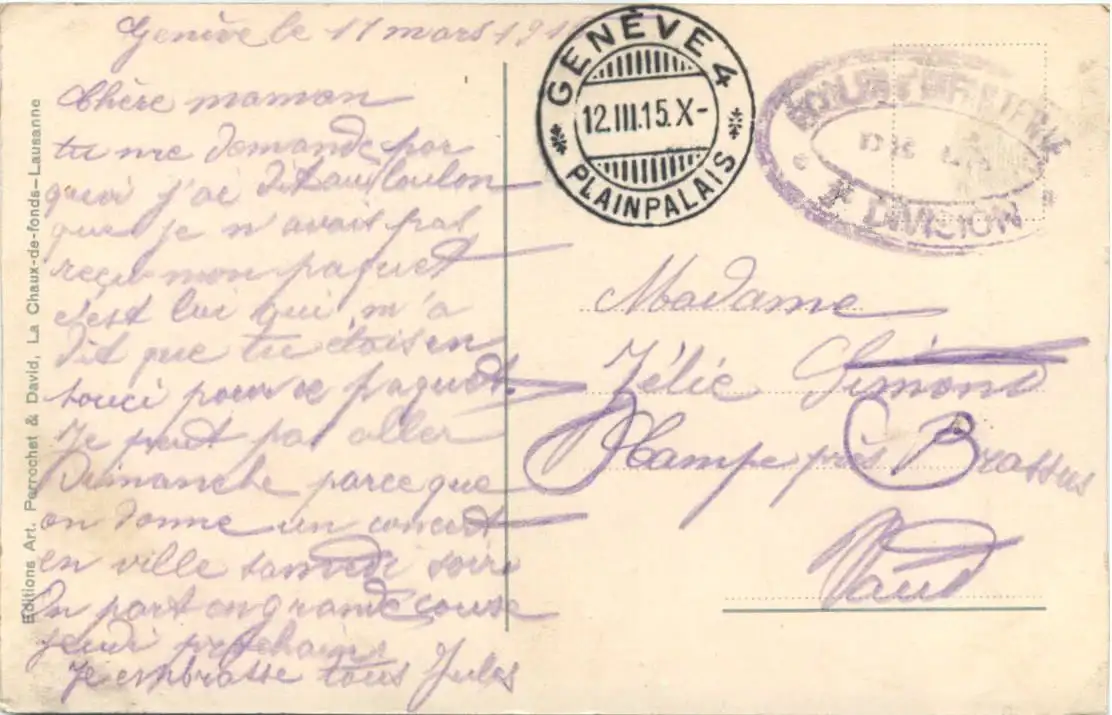 Genève le 11 mars 191
Chère maman
tu me demande por
quoi j'ai dit au Loulon
que je n'avais pas
reçu mon paquet
c'est lui qui m'a
dit que tu étois en
souci pour ce paquet.
Je peut pas aller
Dimanche parce que
on donne un concert
en ville samedi soire
On part en grande couse
jeudi prochain
Je embrasse tous Jules
Editions Art. Perrochet & David, La Chaux-de-fonds-Lausanne
GENÈVE 4
12.III.15.X-
PLAINPALAIS
DIVISION
Madame
Zélie Simond
Campe près Brassus
Vaud